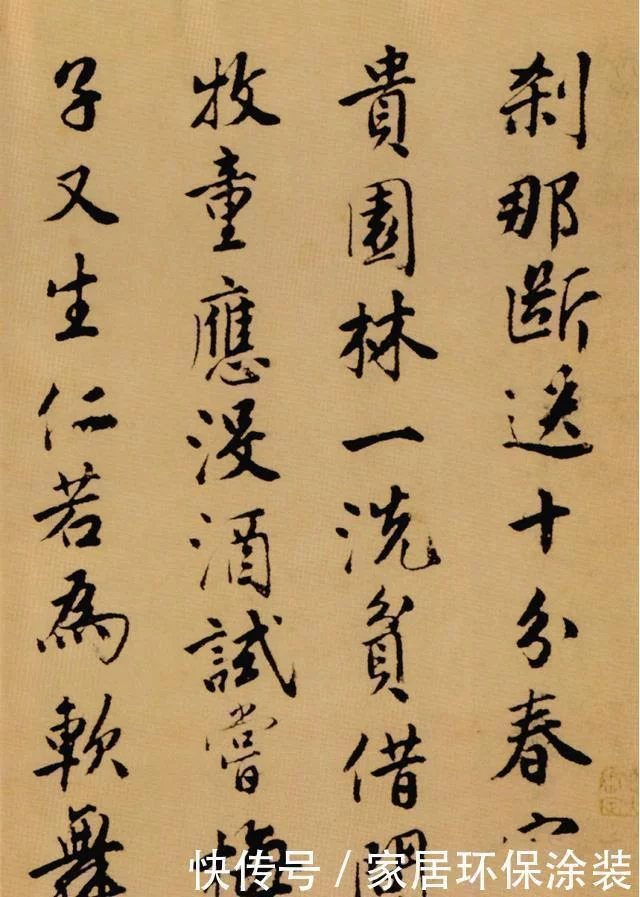 刹那斷送十分春
貴園林一洗貧借問
牧童應沒酒試嘗梅
子又生仁若為軟舞
快传号 / 家居环保涂装